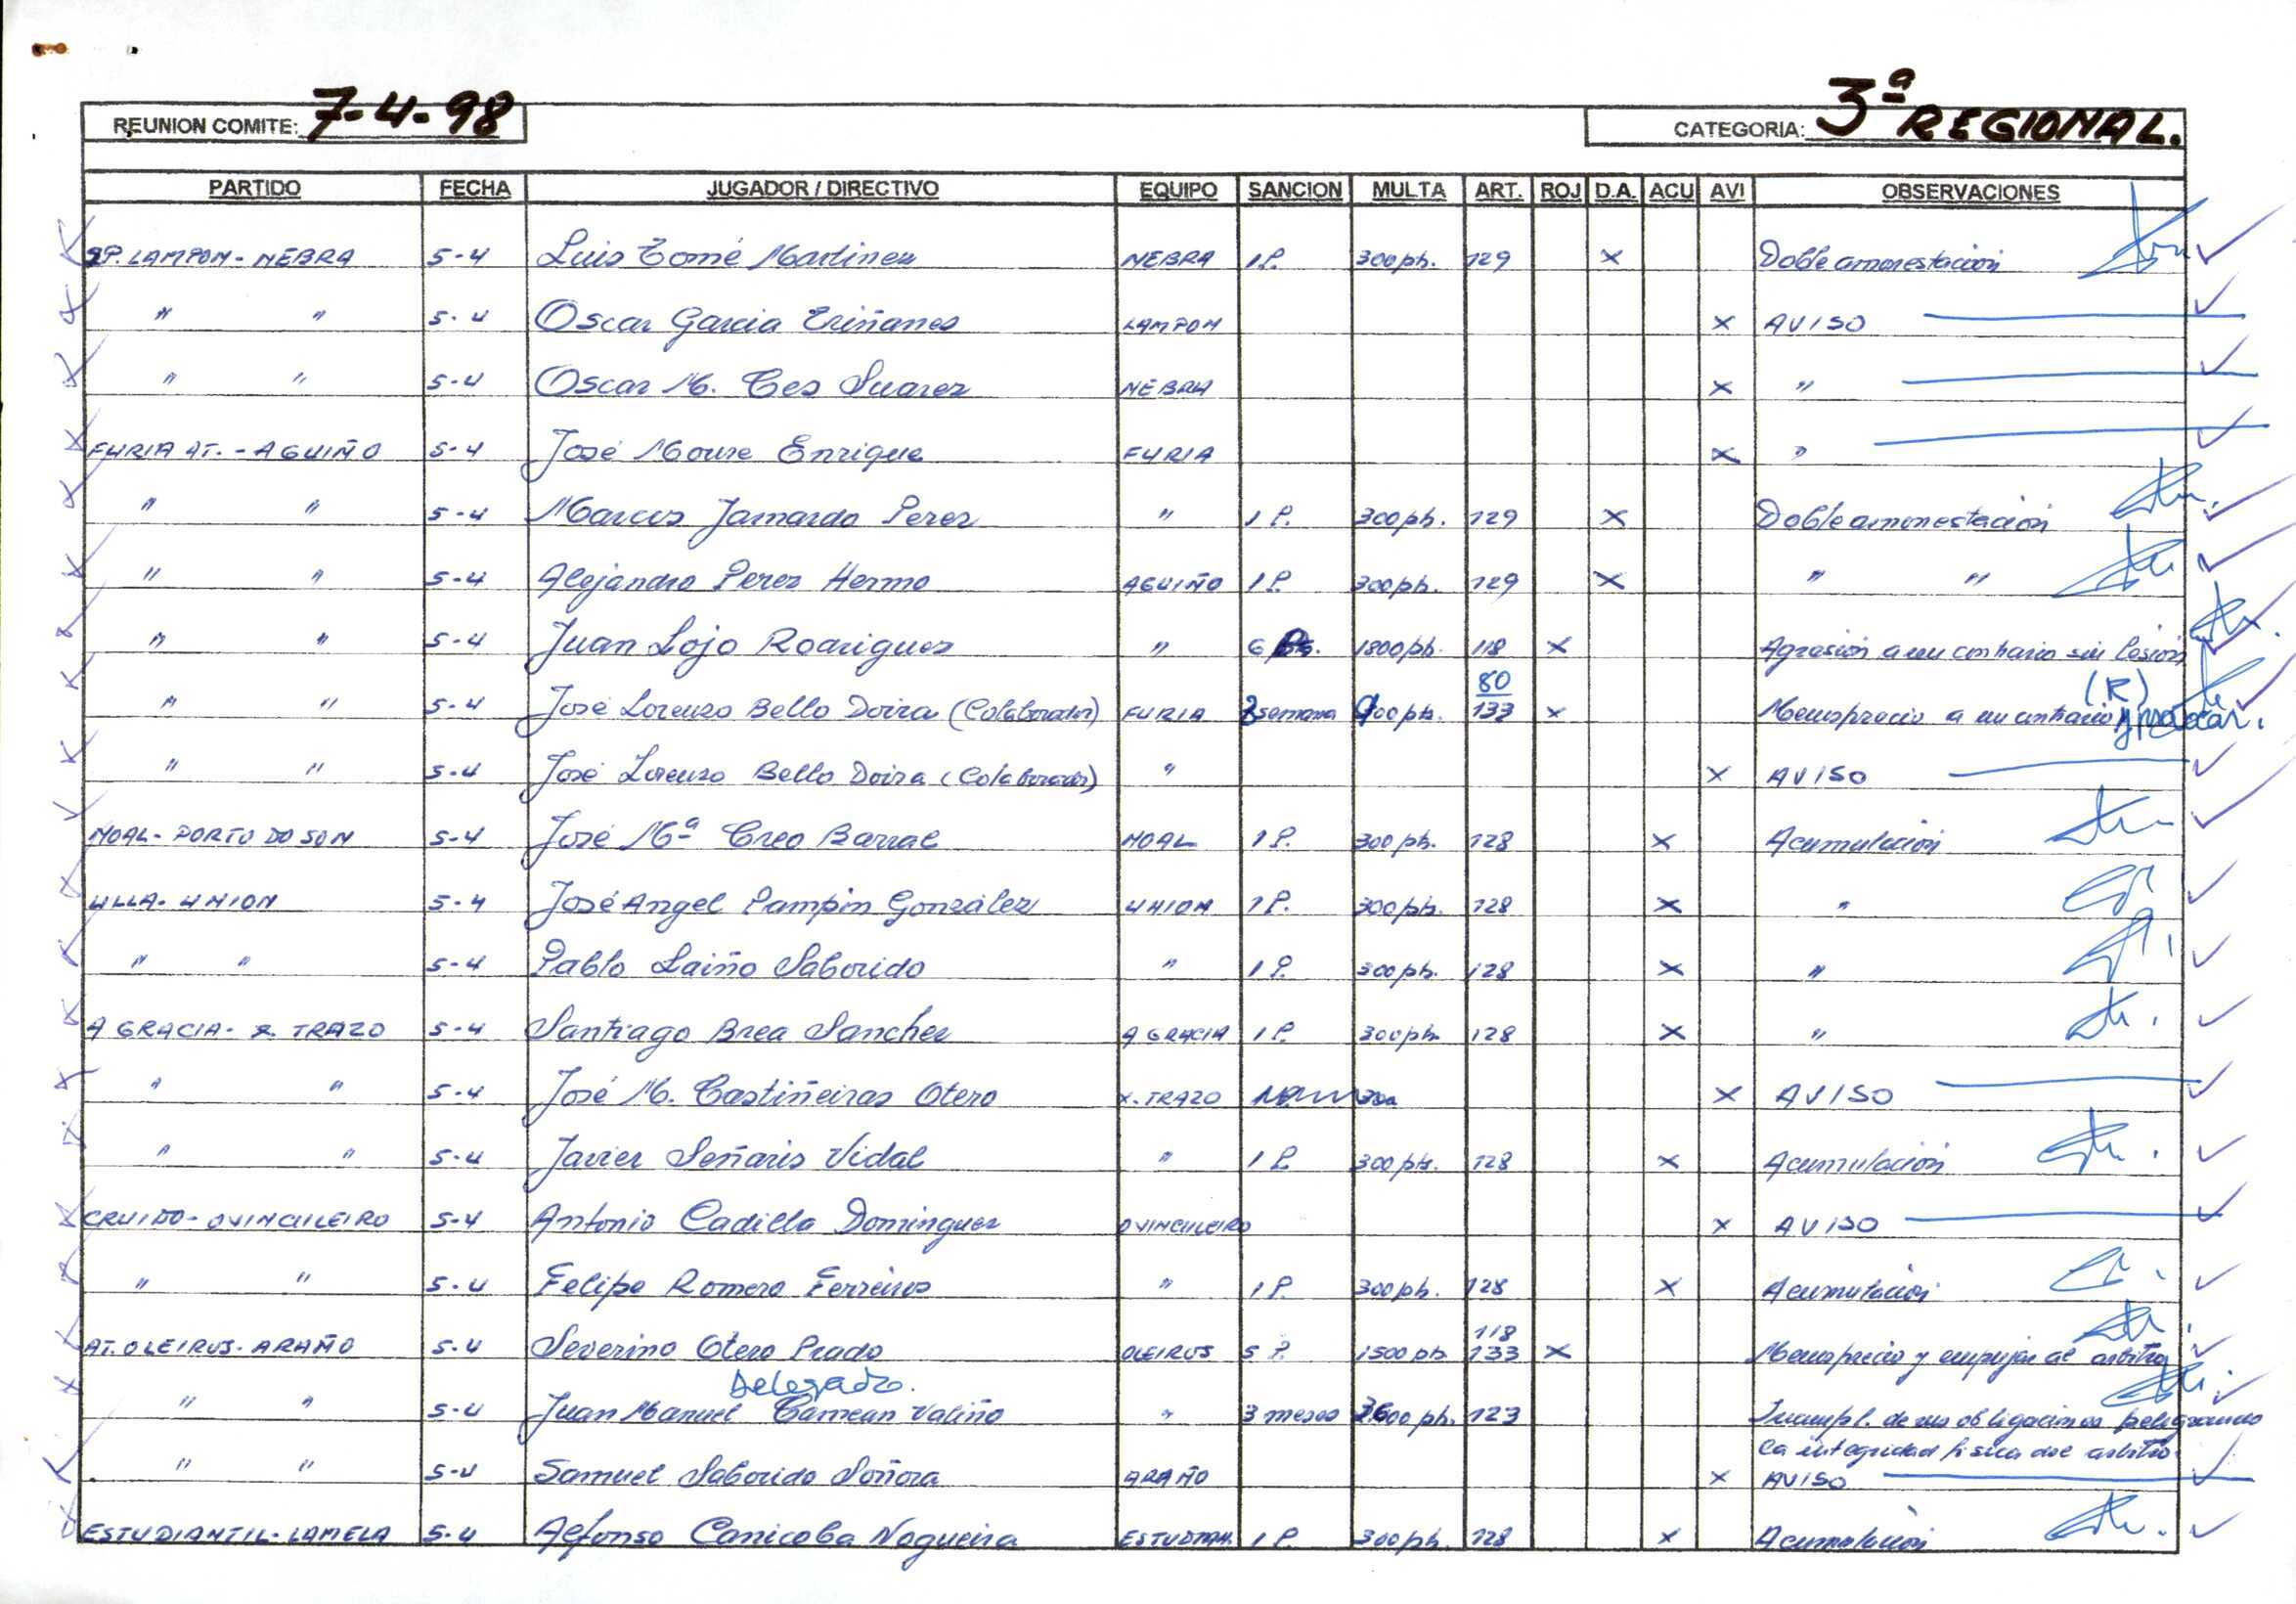 REUNION COMITE: 7-4-98 CATEGORIA: 3ª REGIONAL.
PARTIDO FECHA JUGADOR / DIRECTIVO EQUIPO SANCION MULTA ART. ROJ D.A. ACU AVI OBSERVACIONES
SP. LAMPON - NEBRA 5-4 Luis Tomé Martinez NEBRA 1 P. 300 pts. 129 X Doble amonestación
" " 5-4 Oscar Garcia Triñanes LAMPON X AVISO
" " 5-4 Oscar M. Ces Suarez NEBRA X "
FURIA AT. - AGUIÑO 5-4 José Moure Enrique FURIA X "
" " 5-4 Marcos Jamardo Perez " 1 P. 300 pts. 129 X Doble amonestación
" " 5-4 Alejandro Perez Hermo AGUIÑO 1 P. 300 pts. 129 X " "
" " 5-4 Juan Lojo Rodriguez " 6 1800 pts. 118 X Agresión a un contrario sin lesión
80 (R)
" " 5-4 José Lorenzo Bello Doira (Colaborador) FURIA semana 900 pts. 133 X Menosprecio a un contrario
" " 5-4 José Lorenzo Bello Doira (Colaborador) " X AVISO
NOAL - PORTO DO SON 5-4 José Mª Creo Barral NOAL 1 P. 300 pts. 128 X Acumulación
ULLA - UNION 5-4 José Angel Pampin González UNION 1 P. 300 pts. 128 X "
" " 5-4 Pablo Laiño Saborido " 1 P. 300 pts. 128 X "
A GRACIA - X. TRAZO 5-4 Santiago Brea Sanchez A GRACIA 1 P. 300 pts. 128 X "
" " 5-4 José M. Castiñeiras Otero X. TRAZO X AVISO
" " 5-4 Javier Señaris Vidal " 1 P. 300 pts. 128 X Acumulación
CRUIDO - OVINCULEIRO 5-4 Antonio Cadilla Dominguez OVINCULEIRO X AVISO
" " 5-4 Felipe Romero Ferreiros " 1 P. 300 pts. 128 X Acumulación
118
AT. OLEIROS - ARAÑO 5-4 Severino Otero Prado OLEIROS 5 P. 1500 pts 133 X Menosprecio y empujar al arbitro
Delegado.
" " 5-4 Juan Manuel Camean Valiño " 3 meses 3600 pts. 123 Incumpl. de sus obligaciones peligrando
la integridad fisica del arbitro
" " 5-4 Samuel Saborido Soñora ARAÑO X AVISO
ESTUDIANTIL - LAMELA 5-4 Alfonso Canicoba Nogueira ESTUDIAN. 1 P. 300 pts. 128 X Acumulación